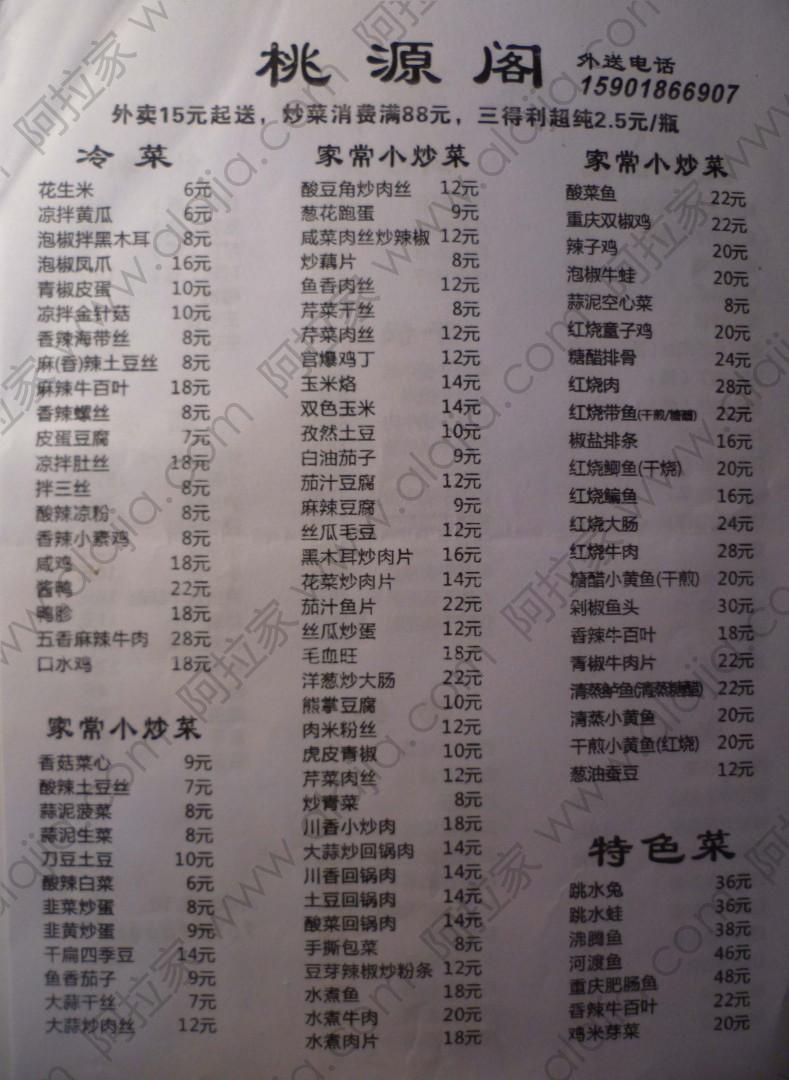 桃源阁
外送电话
15901866907
外卖15元起送，炒菜消费满88元，三得利超纯2.5元/瓶
冷菜
花生米 6元
凉拌黄瓜 6元
泡椒拌黑木耳 8元
泡椒凤爪 16元
青椒皮蛋 10元
凉拌金针菇 10元
香辣海带丝 8元
麻(香)辣土豆丝 8元
麻辣牛百叶 18元
香辣螺丝 8元
皮蛋豆腐 7元
凉拌肚丝 18元
拌三丝 8元
酸辣凉粉 8元
香辣小素鸡 8元
咸鸡 18元
酱鸭 22元
鸭胗 18元
五香麻辣牛肉 28元
口水鸡 18元
家常小炒菜
香菇菜心 9元
酸辣土豆丝 7元
蒜泥菠菜 8元
蒜泥生菜 8元
刀豆土豆 10元
酸辣白菜 6元
韭菜炒蛋 8元
韭黄炒蛋 9元
干扁四季豆 14元
鱼香茄子 9元
大蒜干丝 7元
大蒜炒肉丝 12元
家常小炒菜
酸豆角炒肉丝 12元
葱花跑蛋 9元
咸菜肉丝炒辣椒 12元
炒藕片 8元
鱼香肉丝 12元
芹菜干丝 8元
芹菜肉丝 12元
宫爆鸡丁 12元
玉米烙 14元
双色玉米 14元
孜然土豆 10元
白油茄子 9元
茄汁豆腐 12元
麻辣豆腐 9元
丝瓜毛豆 12元
黑木耳炒肉片 16元
花菜炒肉片 14元
茄汁鱼片 22元
丝瓜炒蛋 12元
毛血旺 18元
洋葱炒大肠 22元
熊掌豆腐 10元
肉米粉丝 12元
虎皮青椒 10元
芹菜肉丝 12元
炒青菜 8元
川香小炒肉 18元
大蒜炒回锅肉 14元
川香回锅肉 14元
土豆回锅肉 14元
酸菜回锅肉 14元
手撕包菜 8元
豆芽辣椒炒粉条 12元
水煮鱼 18元
水煮牛肉 20元
水煮肉片 18元
家常小炒菜
酸菜鱼 22元
重庆双椒鸡 22元
辣子鸡 20元
泡椒牛蛙 20元
蒜泥空心菜 8元
红烧童子鸡 20元
糖醋排骨 24元
红烧肉 28元
红烧带鱼(干煎/糖醋) 22元
椒盐排条 16元
红烧鲫鱼(干烧) 20元
红烧鳊鱼 16元
红烧大肠 24元
红烧牛肉 28元
糖醋小黄鱼(干煎) 20元
剁椒鱼头 30元
香辣牛百叶 18元
青椒牛肉片 22元
清蒸鲈鱼(清蒸糖醋) 22元
清蒸小黄鱼 20元
干煎小黄鱼(红烧) 20元
葱油蚕豆 12元
特色菜
跳水兔 36元
跳水蛙 36元
沸腾鱼 38元
河渡鱼 46元
重庆肥肠鱼 48元
香辣牛百叶 22元
鸡米芽菜 20元
阿拉家 www.alajia.com